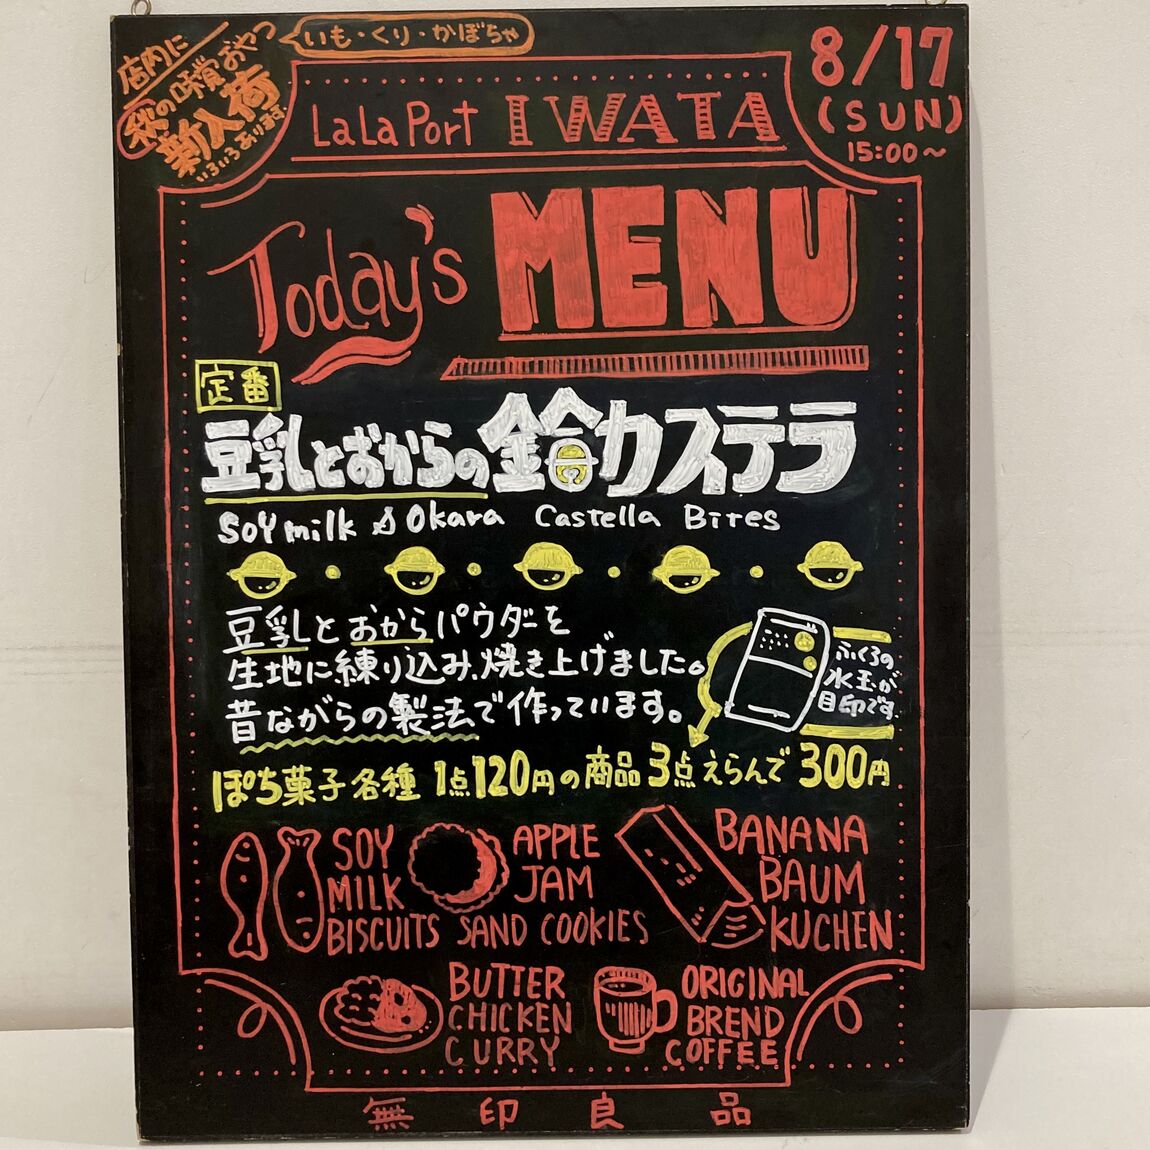 店内に
秋の味覚おやつ
新入荷
いろいろあります。
いも・くり・かぼちゃ
8/17
(SUN)
15:00～
LaLaPort IWATA
Today's MENU
定番
豆乳とおからの鈴カステラ
Soymilk & Okara Castella Bites
豆乳とおからパウダーを
生地に練り込み、焼き上げました。
昔ながらの製法で作っています。
ふくろの
水玉が
目印です。
ぽち菓子各種 1点120円の商品3点えらんで300円
SOY
MILK
BISCUITS
APPLE
JAM
SAND COOKIES
BANANA
BAUM
KUCHEN
BUTTER
CHICKEN
CURRY
ORIGINAL
BREND
COFFEE
無印良品